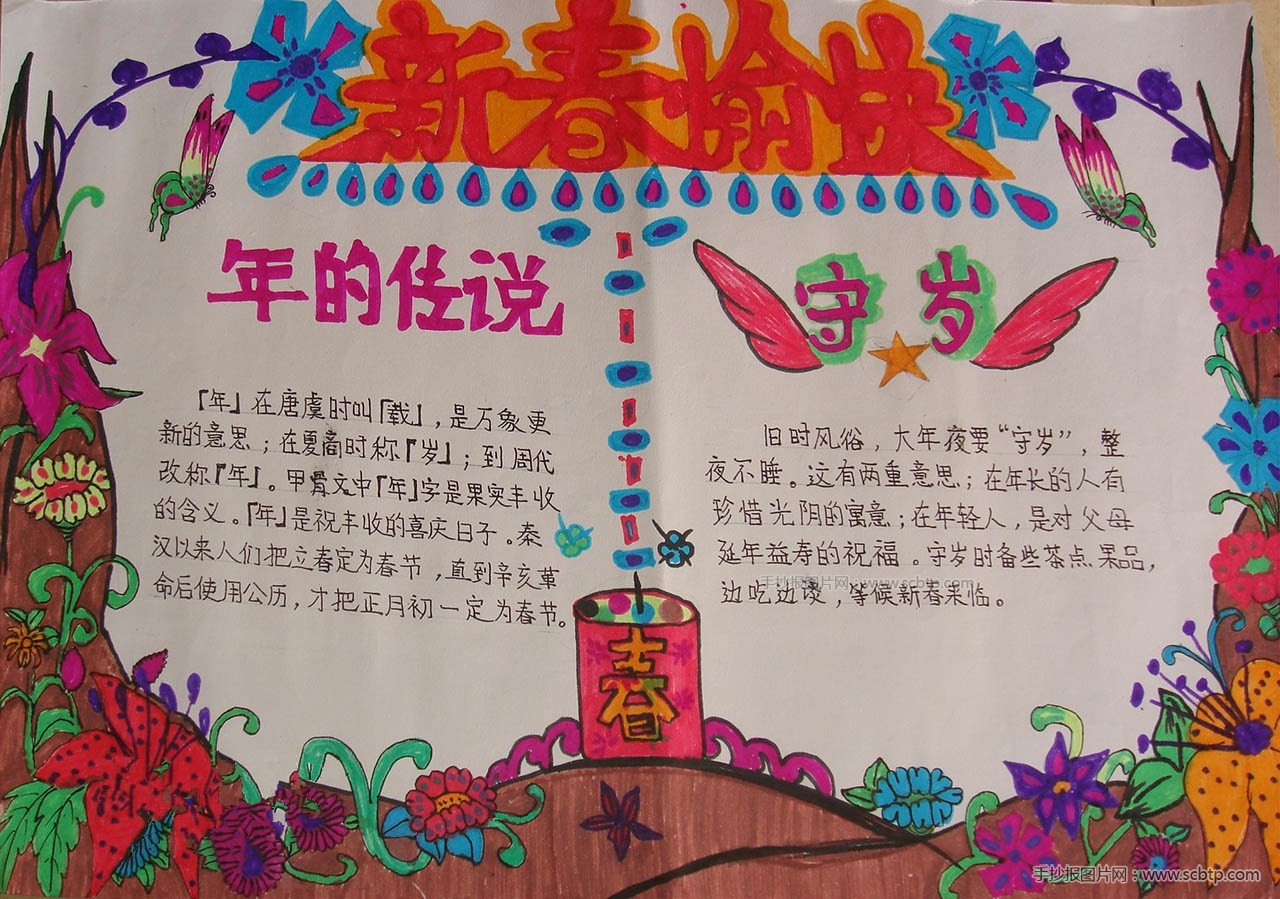 新春愉快
年的传说
『年』在唐虞时叫『载』，是万象更
新的意思；在夏商时称『岁』；到周代
改称『年』。甲骨文中『年』字是果实丰收
的含义。『年』是祝丰收的喜庆日子。秦
汉以来人们把立春定为春节，直到辛亥革
命后使用公历，才把正月初一定为春节。
守岁
旧时风俗，大年夜要“守岁”，整
夜不睡。这有两重意思；在年长的人有
珍惜光阴的寓意；在年轻人，是对父母
延年益寿的祝福。守岁时备些茶点果品，
边吃边谩，等候新春来临。
春
手抄报图片网：www.scbtp.com
手抄报图片网：www.scbtp.com